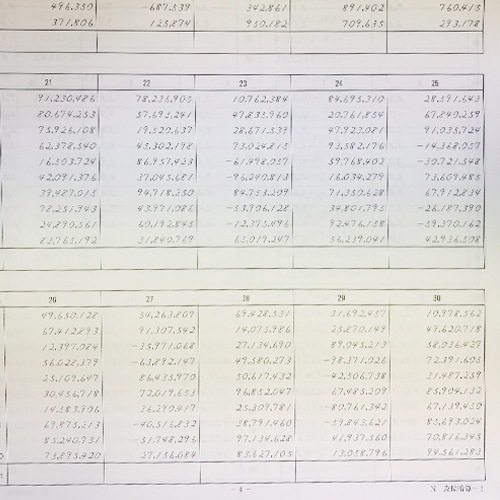 496,350 -687,539 342,861 891,402 760,415
371,806 125,874 950,182 709,635 293,178
21 22 23 24 25
91,230,486 78,236,905 10,762,384 84,695,310 28,591,643
80,674,253 57,693,241 47,835,960 20,761,854 67,840,259
75,926,108 19,520,637 28,671,539 47,923,081 91,035,724
62,378,540 45,302,198 73,024,815 93,582,176 -14,368,057
16,503,724 86,957,423 -61,498,057 59,768,403 -30,721,548
42,091,376 37,045,681 -96,240,813 16,034,279 73,609,485
39,487,015 94,718,350 84,753,209 71,350,628 67,912,834
78,251,943 43,971,086 -53,906,128 34,801,795 -26,187,390
24,890,561 60,192,845 -12,375,496 92,476,158 -59,370,162
83,765,192 31,840,769 65,019,247 56,239,041 42,936,508
26 27 28 29 30
49,650,128 54,263,809 69,428,531 31,692,457 10,978,562
67,412,893 91,307,542 14,075,986 25,870,149 49,620,718
12,397,084 -35,971,068 27,134,690 89,045,213 58,036,427
56,028,379 -63,892,147 49,580,273 -98,371,026 72,391,605
25,109,647 86,435,970 50,617,432 -42,506,738 31,487,259
30,456,718 72,019,653 96,852,047 67,485,209 85,904,132
14,583,906 36,290,417 25,309,781 -80,761,342 67,139,450
69,875,213 -40,516,832 38,791,460 -59,843,621 83,693,024
85,240,731 -51,748,296 97,134,628 41,937,560 70,816,345
73,895,420 27,156,084 83,627,105 13,058,796 94,561,283
- 4 -